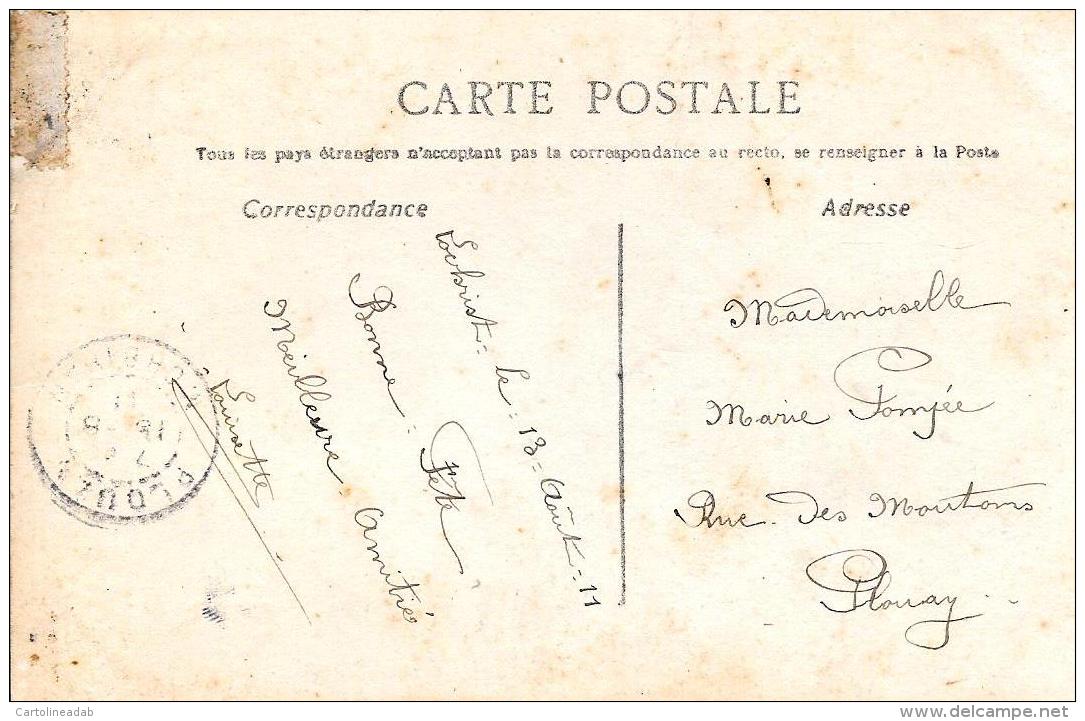 CARTE POSTALE
Tous les pays étrangers n'acceptant pas la correspondance au recto, se renseigner à la Poste
Correspondance
Adresse
Locbrist = le = 13 = Août = 11
Bonne : Fête
Meilleure Amitié
Louisette
Mademoiselle
Marie
Rue. Des Moutons
Plouay
Cartolineadab
www.delcampe.net